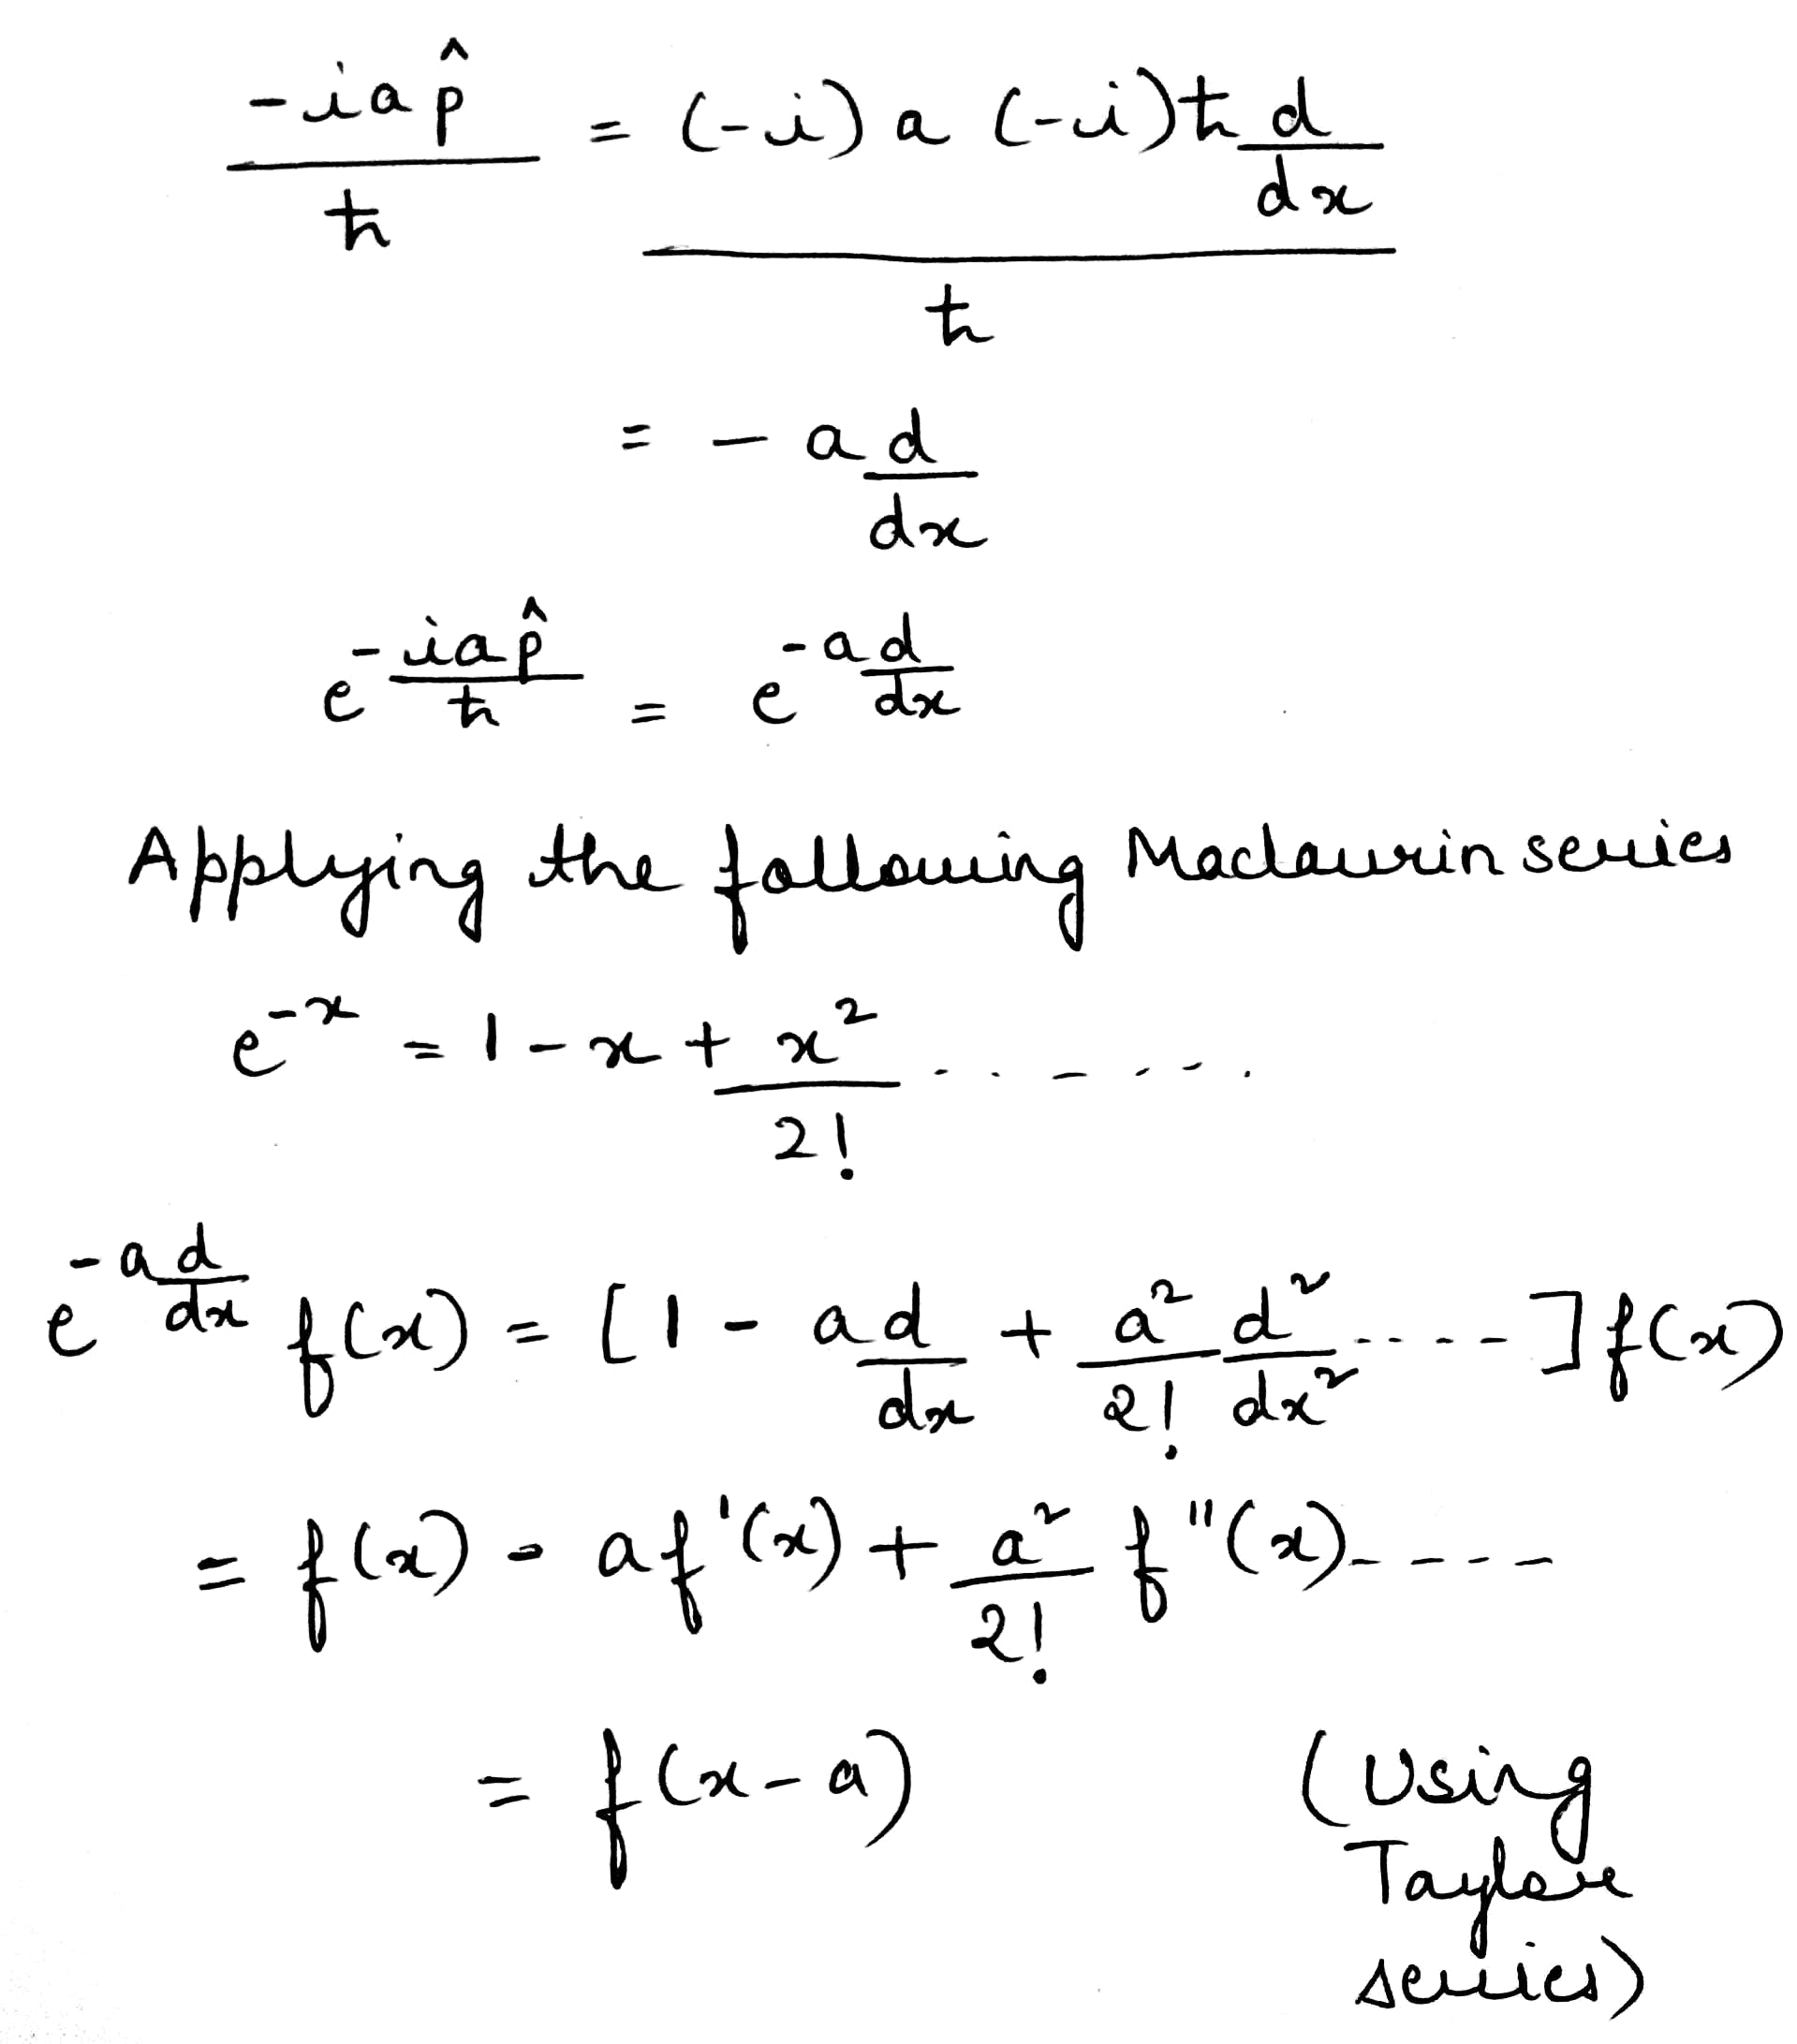 -iap̂/ħ = (-i) a (-i)ħ d/dx / ħ
= - a d/dx
e^(-iap̂/ħ) = e^(-a d/dx)
Applying the following Maclaurin series
e^(-x) = 1 - x + x²/2! .......
e^(-a d/dx) f(x) = [1 - a d/dx + a²/2! d²/dx² .....] f(x)
= f(x) - af'(x) + a²/2! f''(x).....
= f(x-a) (Using
Taylor
series)